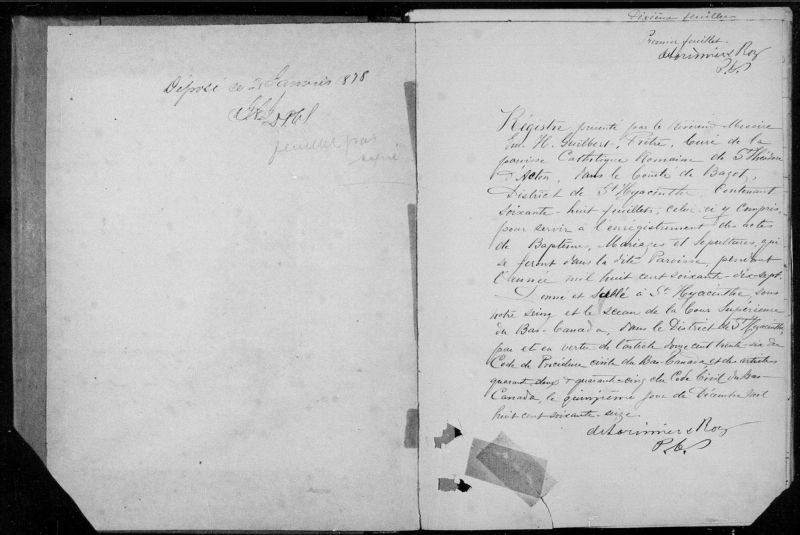 Déposé ce 3 Janvier 1878
feuillet pas
Dixième feuillet
Premier feuillet.
deLorimier & Roy
P.C.S
Régistre présenté par le Révérend Messire
H. Guilbert, Prêtre, Curé de la
paroisse Catholique Romaine de St Théodore
d'Acton, dans le Comté de Bagot,
District de St Hyacinthe, Contenant
soixante-huit feuillets, celui-ci y compris,
pour servir à l'enrégistrement des actes
de Baptêmes, Mariages et Sepultures, qui
se feront dans la dite Paroisse, pendant
l'année mil huit cent soixante-dix-sept.
Donné et Scellé à St Hyacinthe, sous
notre seing et le sceau de la Cour Supérieure
du Bas-Canada, dans le District de St Hyacinthe,
par et en vertu de l'article douze cent trente-six du
Code de Procédure civile du Bas-Canada et des articles
quarante-deux & quarante-cinq du Code Civil du Bas-
Canada, le quinzième jour de Décembre mil
huit cent soixante-seize.
deLorimier & Roy
P.C.S